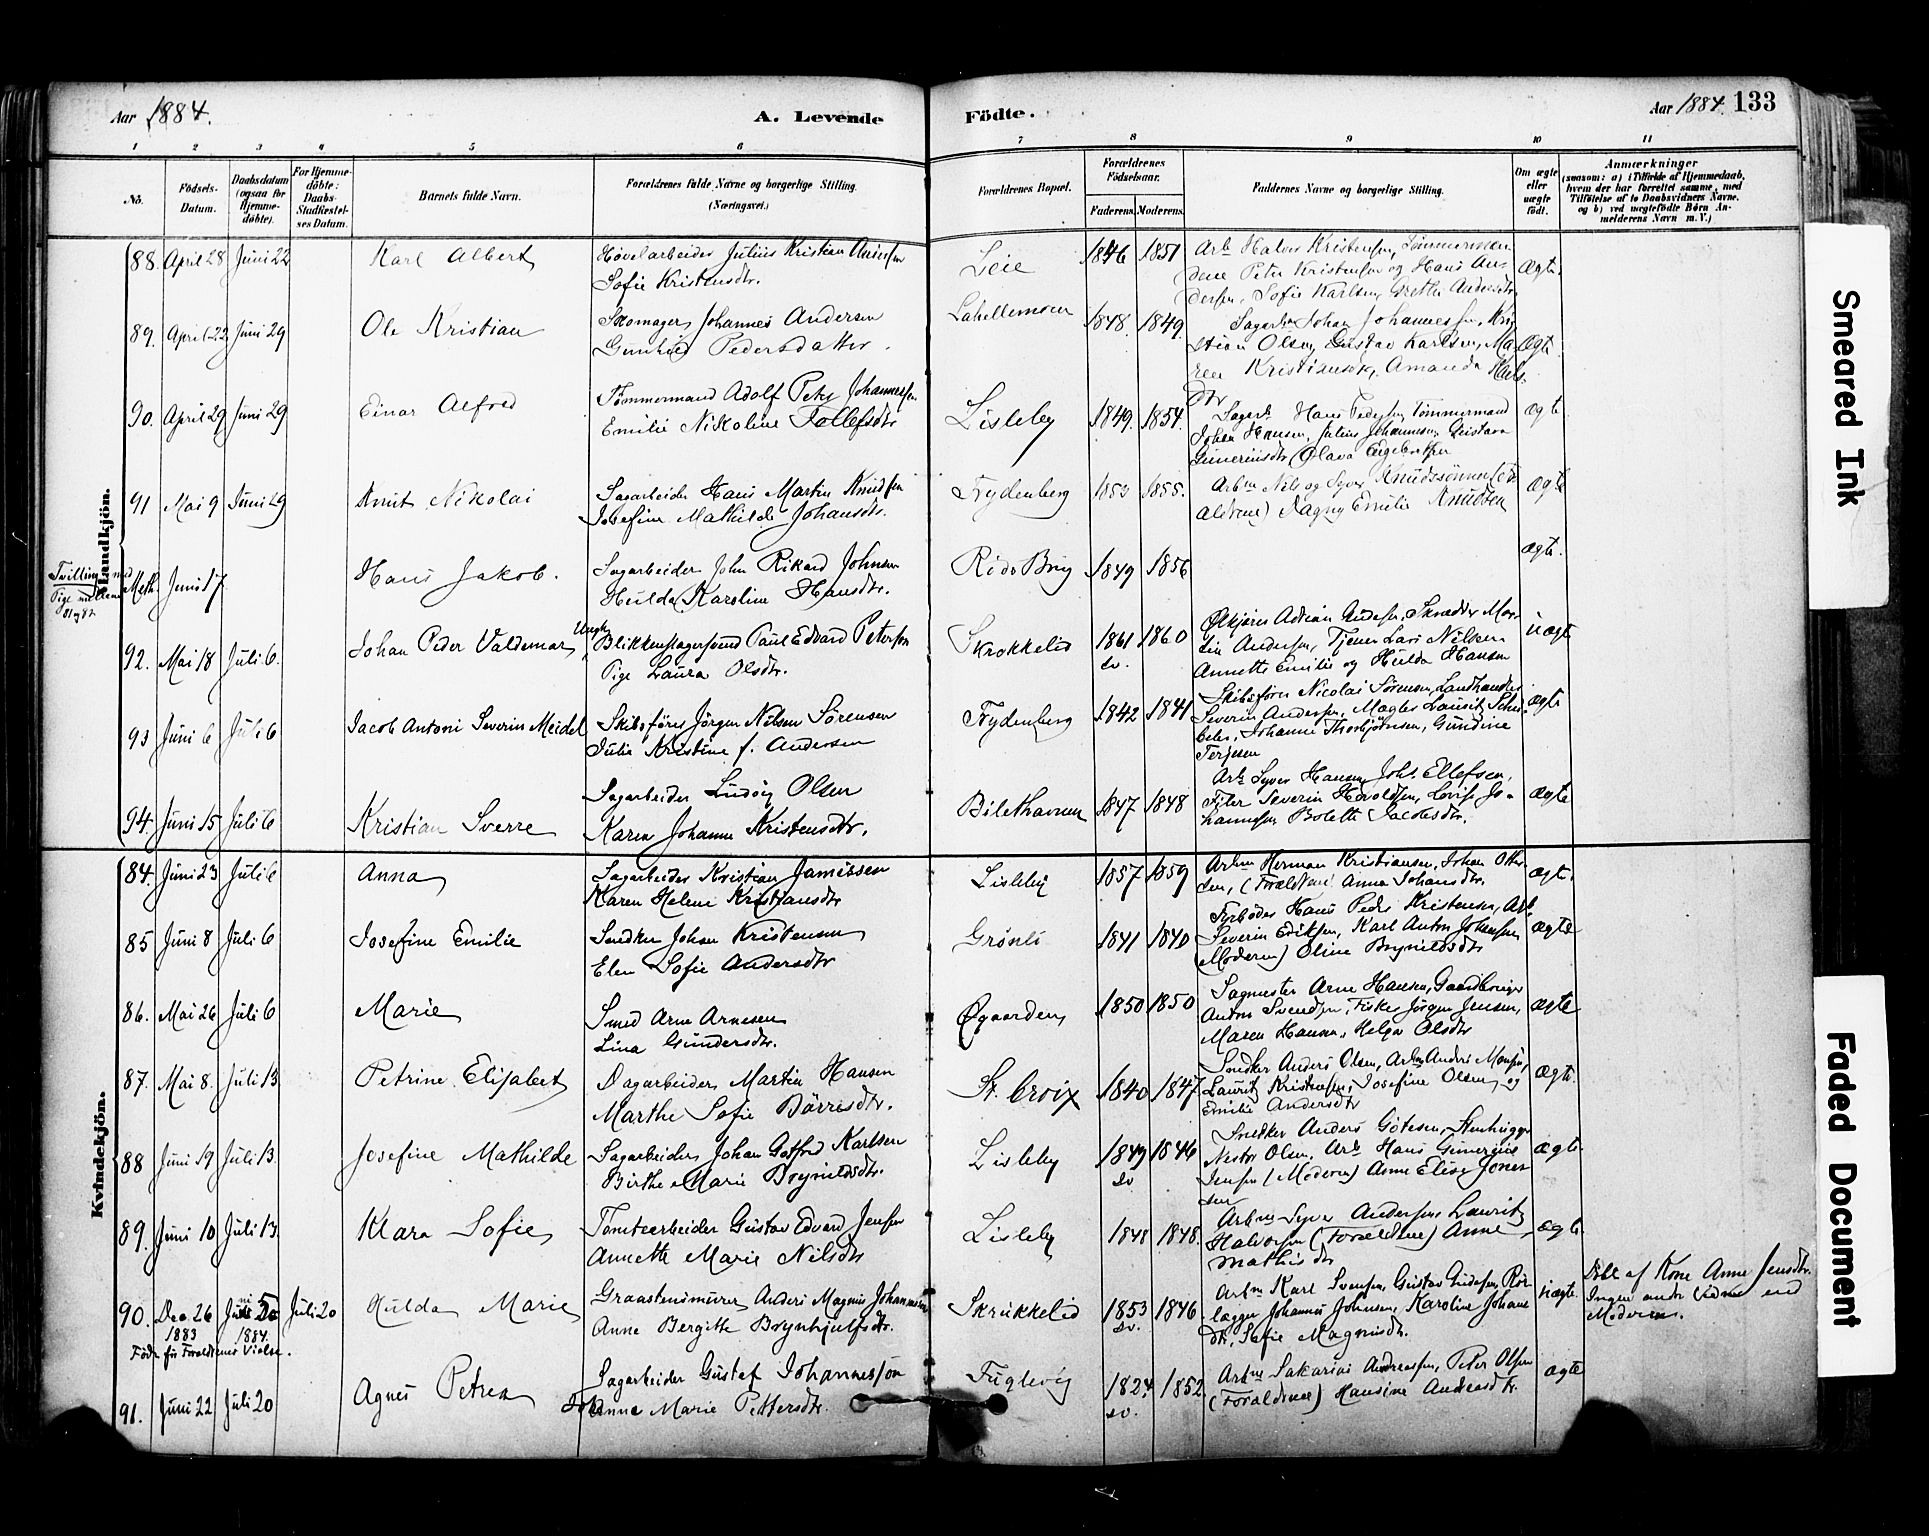 Aar 1884.
A. Levende
Fødte.
Aar 1884. 133
1 2 3 4 5 6 7 8 9 10 11
No.
Fødsels-Datum.
Daabsdatum (ogsaa for Hjemme-døbte).
For Hjemme-døbte: Daabs-Stadfæstel-ses Datum.
Barnets fulde Navn.
Forældrenes fulde Navne og borgerlige Stilling. (Næringsvei.)
Forældrenes Bopæl.
Forældrenes Fødselsaar.
Faderens. Moderens.
Faddernes Navne og borgerlige Stilling.
Om ægte eller uægte født.
Anmærkninger
(saasom: a) i Tilfælde af Hjemmedaab, hvem der har forrettet samme, med Tilføielse af to Daabsvidners Navne, og b) ved uægtefødte Børn An-melderens Navn m. V.)
Mandkjøn.
88. April 28 Juni 22 Karl Albert Høvelarbeider Julius Kristian Andersen
Sofie Kristensdtr. Leie 1846 1851 Arb. Halvor Kristensen, Tømmermæn
dene Peter Kristensen og Hans An
dersen, Sofie Karlsen, Grethe Andersdtr. Ægte.
89. April 22 Juni 29 Ole Kristian Skomager Johannes Andersen
Gunhild Pedersdatter. Lahellemoen 1848. 1849. Sagarb. Johan Johannessen, Kri
stian Olsen, Gustav Karlsen, Ma
ren Kristiansdtr, Amanda Karls
dtr Ægte.
90. April 29 Juni 29 Einar Alfred Tømmermand Adolf Peter Johannessen
Emilie Nikoline Tollefsdtr Lisleby 1849. 1854. Sagarb. Hans Pedersen, Tømmermand
Johan Hansen, Julius Johannesen, Gustava
Gunerius dtr, Olava Engebretsen ægte
91 Mai 9 Juni 29 Knut Nikolai Sagarbeider Hans Martin Knudsen
Josefine Mathilde Johansdtr. Trydenberg 1853 1855. Arbm Nils og Syver Knudssønner (For
ældrene) Dagny Emilie Knudsen Ægte
Tvilling med
Pige mellem
81 og 82
Meth. Juni 17 Hans Jakob. Sagarbeider John Rikard Johnsen
Hulda Karoline Hansdtr. Røde Brug 1849 1856 ægte.
92. Mai 18 Juli 6. Johan Peder Valdemar Ungk. Blikkenslagersvend Paul Edvard Petersen
Pige Laura Olsdtr. Skrokkelid 1861 sv. 1860 Ølkjører Adrian Andersen, Skrædder Mar
tin Andersen, Tjener Lars Nilsen
Annette Emilie og Hulda Hansen uægt
93 Juni 6 Juli 6 Jacob Antoni Severin Meidel Skibsfører Jørgen Nilsen Sørensen
Julie Kristine f. Andersen Trydenberg 1842 1841 Skibsfører Nicolai Sørensen, Landhandler
Severin Andersen, Mægler Lauritz Schie
beler, Johanne Thorbjørnsen, Gundine
Terjesen ægte
94. Juni 15 Juli 6 Kristian Sverre Sagarbeider Ludvig Olsen
Karen Johanne Kristensdtr. Bilethavnen 1847 1848 Arb. Syver Hansen, Johs. Ellefsen,
Filer Severin Haroldsen, Lovise Jo-
hannesen Bolette Jacobsdtr. ægte
Kvindekjøn.
84. Juni 23 Juli 6 Anna Sagarbeider Kristian Jamissen
Karen Helene Kristiansdtr Lisleby 1857 1859 Arbm Herman Kristiansen, Johan Otter
sen, (Forældrene) Anna Johansdtr. ægte.
85 Juni 8 Juli 6 Josefine Emilie Snedker Johan Kristensen
Elen Sofie Andersdtr Grønli 1841 1840 Fyrbøder Hans Peder Kristensen, Arb.
Severin Eriksen, Karl Anton Johansen,
(Moderen) Oline Brynildsdtr ægte
86. Mai 26 Juli 6 Marie Smed Arne Arnesen
Lina Gundersdtr. Øgaarden, 1850 1850 Sagmester Arne Hansen, Gaardbruger
Anton Svendsen, Fisker Jørgen Jensen,
Maren Hansen, Helga Olsdtr ægte
87. Mai 8. Juli 13 Petrine Elisabet Dagarbeider Martin Hansen
Marthe Sofie Børresdtr. St. Croix 1840 1847 Snedker Anders Olsen, Arbm Anders Monsen,
Lauritz Kristensen, Josefine Olsen, og
Emilie Andersdtr ægte.
88 Juni 19 Juli 13. Josefine Mathilde Sagarbeider Johan Gotfred Karlsen
Birthe Marie Brynildsdtr. Lisleby 1849 sv 1846 Snedker Anders Götesen, Stenhugger
Nestor Olsen, Arb. Hans Gunerius
Jensen (Moderen) Anne Elise Jonas
sen ægte
89. Juni 10 Juli 13. Klara Sofie Tomtearbeider Gustav Edvard Jensen
Annette Marie Nilsdtr Lisleby 1848 1848. Arbm Syver Andersen, Lauritz
Halvorsen (Forældrene) Anne
Mathisdtr ægte
90. Dec 26 1883 Juni 5 1884. Juli 20 Hulda Marie Graastensmurer Anders Magnus Johannesen
Anne Bergitte Brynhjulfsdtr. Skrukkelid 1853 sv. 1846 Arbm Karl Svensen, Gustav Andersen, Rør
lægger Johannes Johnsen, Karoline Johans
dtr, Sofie Magnusdtr. uægte. Døbt af Kone Anne Jensdtr.
Ingen andre Vidner end
Moderen.
Født før Forældrenes Vielse.
91. Juni 22 Juli 20 Agnes Petrea Sagarbeider Gustaf Johannesson
Anne Marie Pettersdtr. Fuglevig 1824 sv. 1852 Arbm Sakarias Andreassen, Peter Olsen
(Forældrene) Hansine Andreasdtr. ægte
Smeared Ink
Faded Document